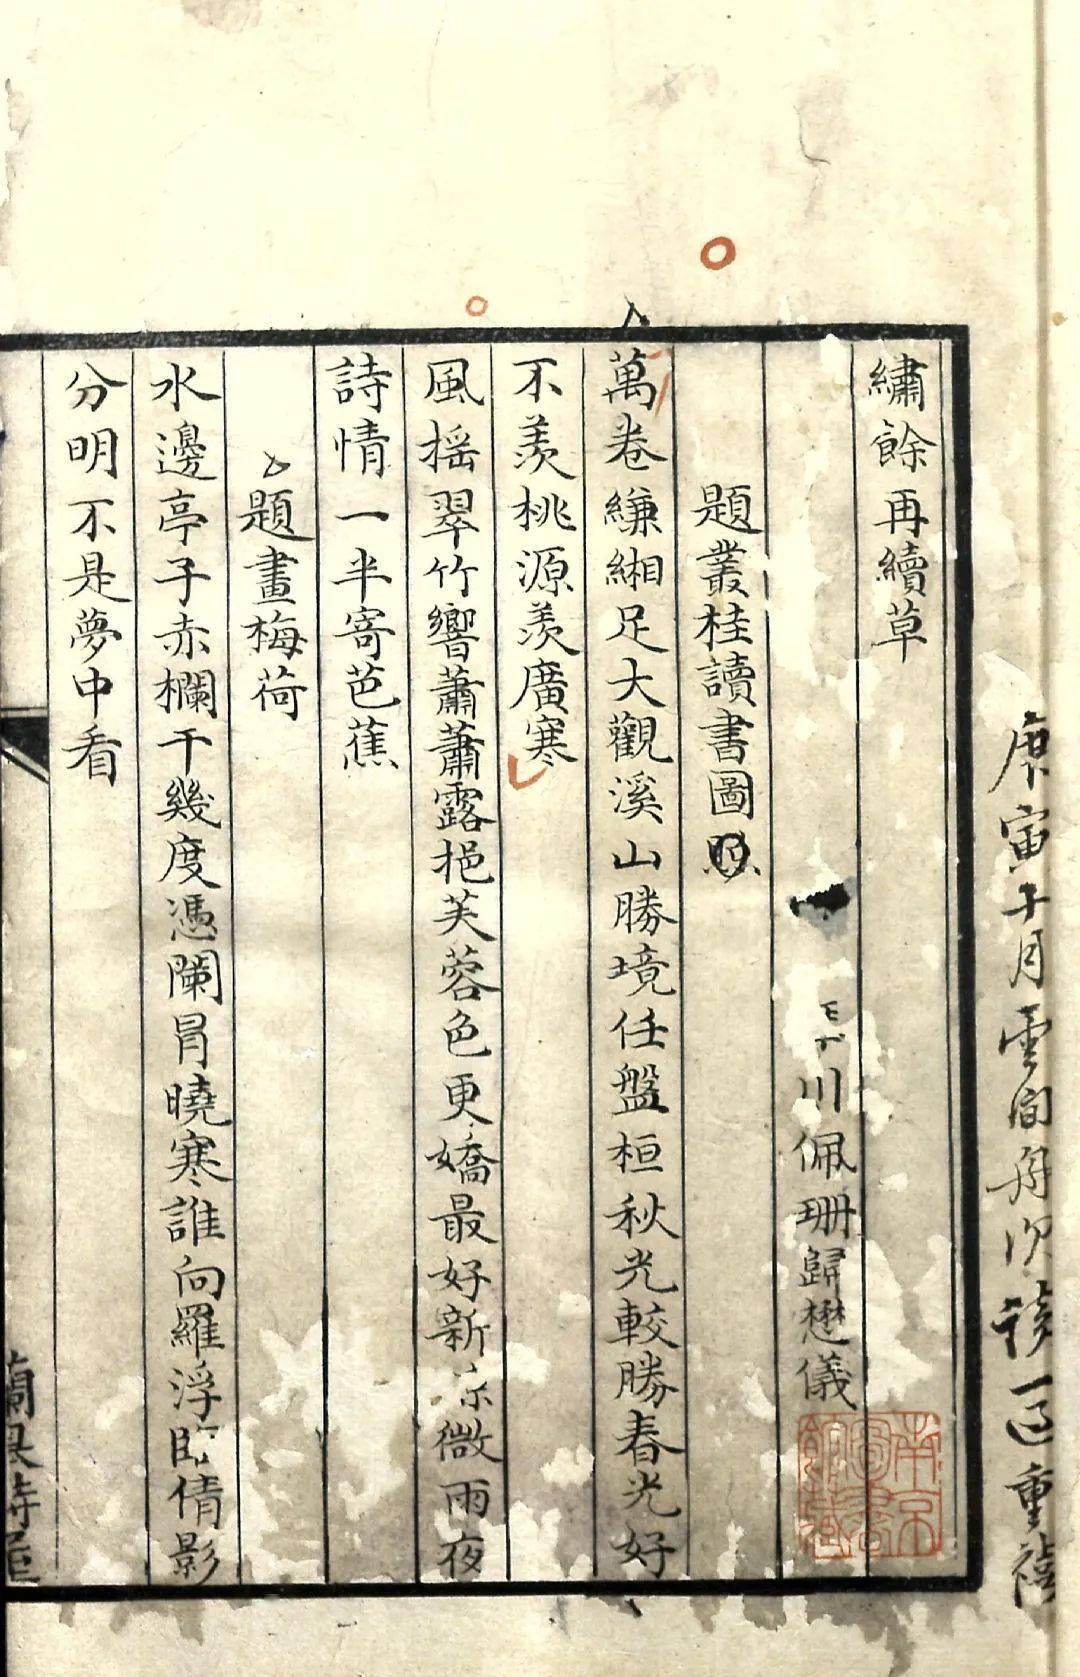 庚寅十月雲間舟次讀一過重禧
繡餘再續草
川佩珊歸懋儀
南京圖書館藏
題叢桂讀書圖
萬卷縑緗足大觀溪山勝境任盤桓秋光較勝春光好
不羨桃源羨廣寒
風搖翠竹響蕭蕭露挹芙蓉色更嬌最好新涼微雨夜
詩情一半寄芭蕉
題畫梅荷
水邊亭子赤欄干幾度憑闌冐曉寒誰向羅浮臨倩影
分明不是夢中看